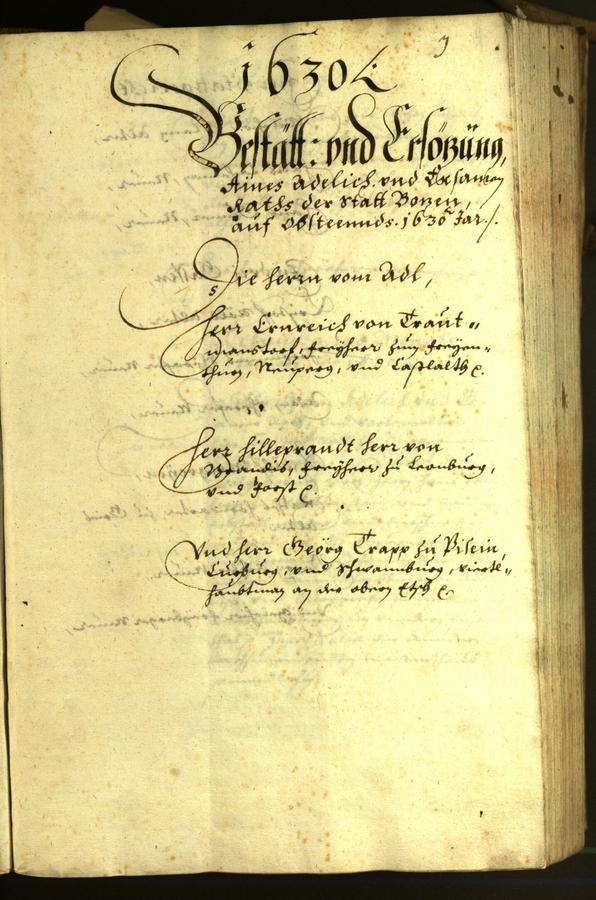 1630
Bestätt: vnd Ersözung,
Aines Adelich. vnd Ersamen
Raths der Statt Bozen,
auf Obsteennds. 1630 Jar./.
Die herrn vom Adl,
herr Ernreich von Traut=
manstorf, freyherr zum freyen=
thurn, Neuperg, vnd Castlalth ꝛ.
herr hilleprandt herr von
Brandis, freyherr zu Leonburg,
vnd Forst ꝛ.
Vnd herr Geörg Trapp zu Pisein,
Curburg, vnd Schwannburg, viertl=
haubtman an der obern Etsch ꝛ